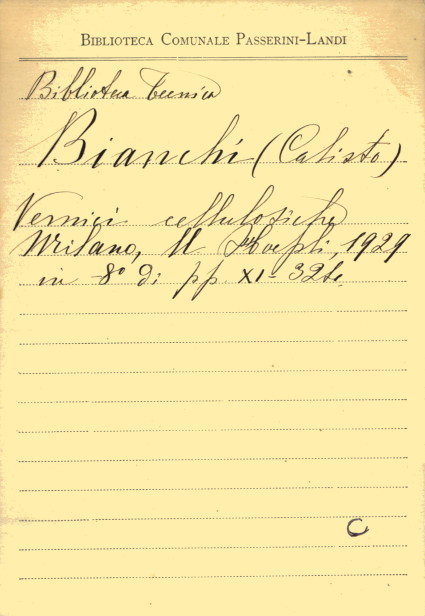 BIBLIOTECA COMUNALE PASSERINI-LANDI
Biblioteca Tecnica
Bianchi (Calisto)
Vernici cellulosiche
Milano, U Hoepli, 1929
in -8° di pp. XI-
C